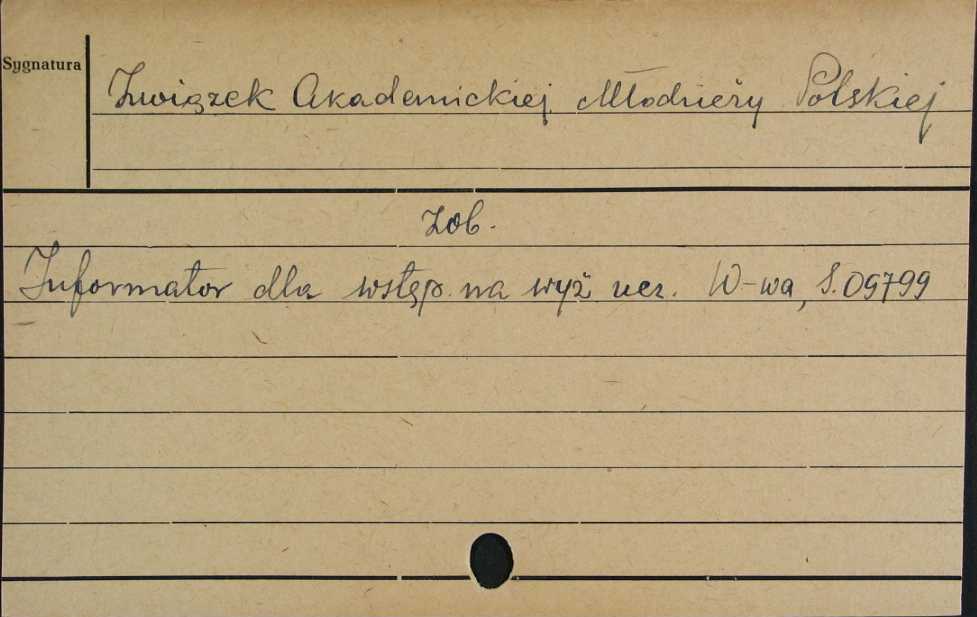 Sygnatura
Związek Akademickiej Młodzieży Polskiej
zob.
Informator dla wstęp. na wyż ucz. W-wa, S.09799